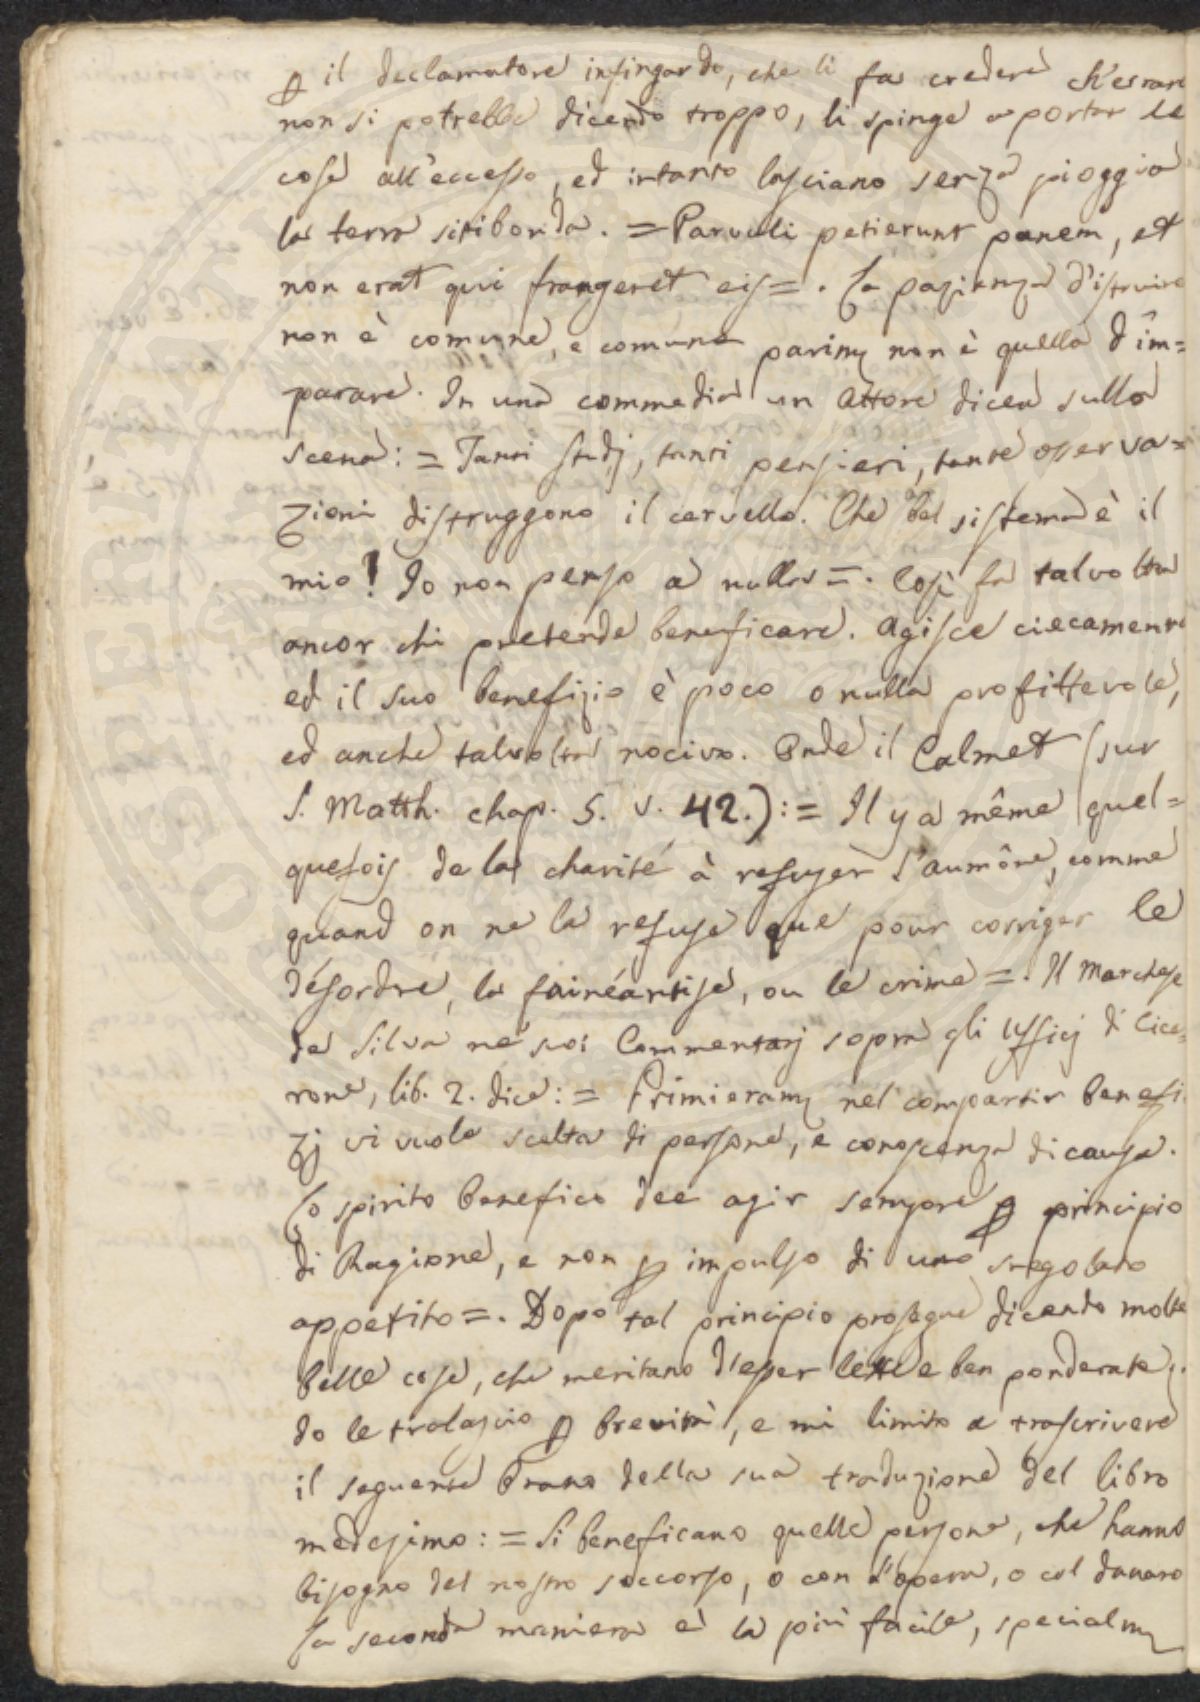 ꝑ il declamatore infingardo, che li fa credere ch'errare
non si potrebbe dicendo troppo, li spinge a portar le
cose all'eccesso, ed intanto lasciano senza pioggia
la terra sitibonda. = Parvuli petierunt panem, et
non erat qui frangeret eis =. La pazienza d'istruire
non è comune, e comune parimẽ non è quella d'im=
parare. In una commedia un Attore dicea sulla
scena: = Tanti studj, tanti pensieri, tante osserva=
zioni distruggono il cervello. Che bel sistema è il
mio! Io non penso a nulla =. Così fa talvolta
ancor chi pretende beneficare. Agisce ciecamente
ed il suo benefizio è poco o nulla profittevole,
ed anche talvolta nocivo. Onde il Calmet (sur
S. Matth. chap. 5. v. 42.): = Il y a même quel=
quefois de la charité à refuser l'aumône, comme
quand on ne la refuse que pour corriger le
désordre, la fainéantise, ou le crime =. Il Marchese
de Silva ne' suoi Commentarj sopra gli Ufficj di Cice=
rone, lib. 2. dice: = Primieramẽ nel compartir benefi
zj vi vuole scelta di persone, e conoscenza di cause.
Lo spirito benefico dee agir sempre ꝑ principio
di Ragione, e non ꝑ impulso di uno sregolato
appetito =. Dopo tal principio prosegue dicendo molte
belle cose, che meritano d'esser lette e ben ponderate.
Io le tralascio ꝑ brevità, e mi limito a trascrivere
il seguente brano della sua traduzione del libro
medesimo: = Si beneficano quelle persone, che hanno
bisogno del nostro soccorso, o con l'opera, o col danaro
La seconda maniera è la più facile, specialmẽ